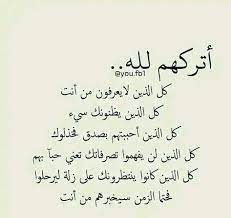 أتركهم لله..
@you.fb1
كل الذين لايعرفون من أنت
كل الذين يظنونك سيء
كل الذين أحببتهم بصدق فخذلوك
كل الذين لن يفهموا تصرفاتك تعني حبآ بهم
كل الذين كانوا ينتظرونك على زلة ليرحلوا
فحتما الزمن سيخبرهم من أنت